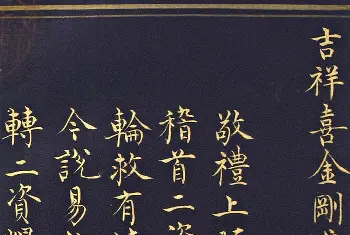 吉祥喜金剛
敬禮上
稽首二資
輪救有
今說易
轉二資